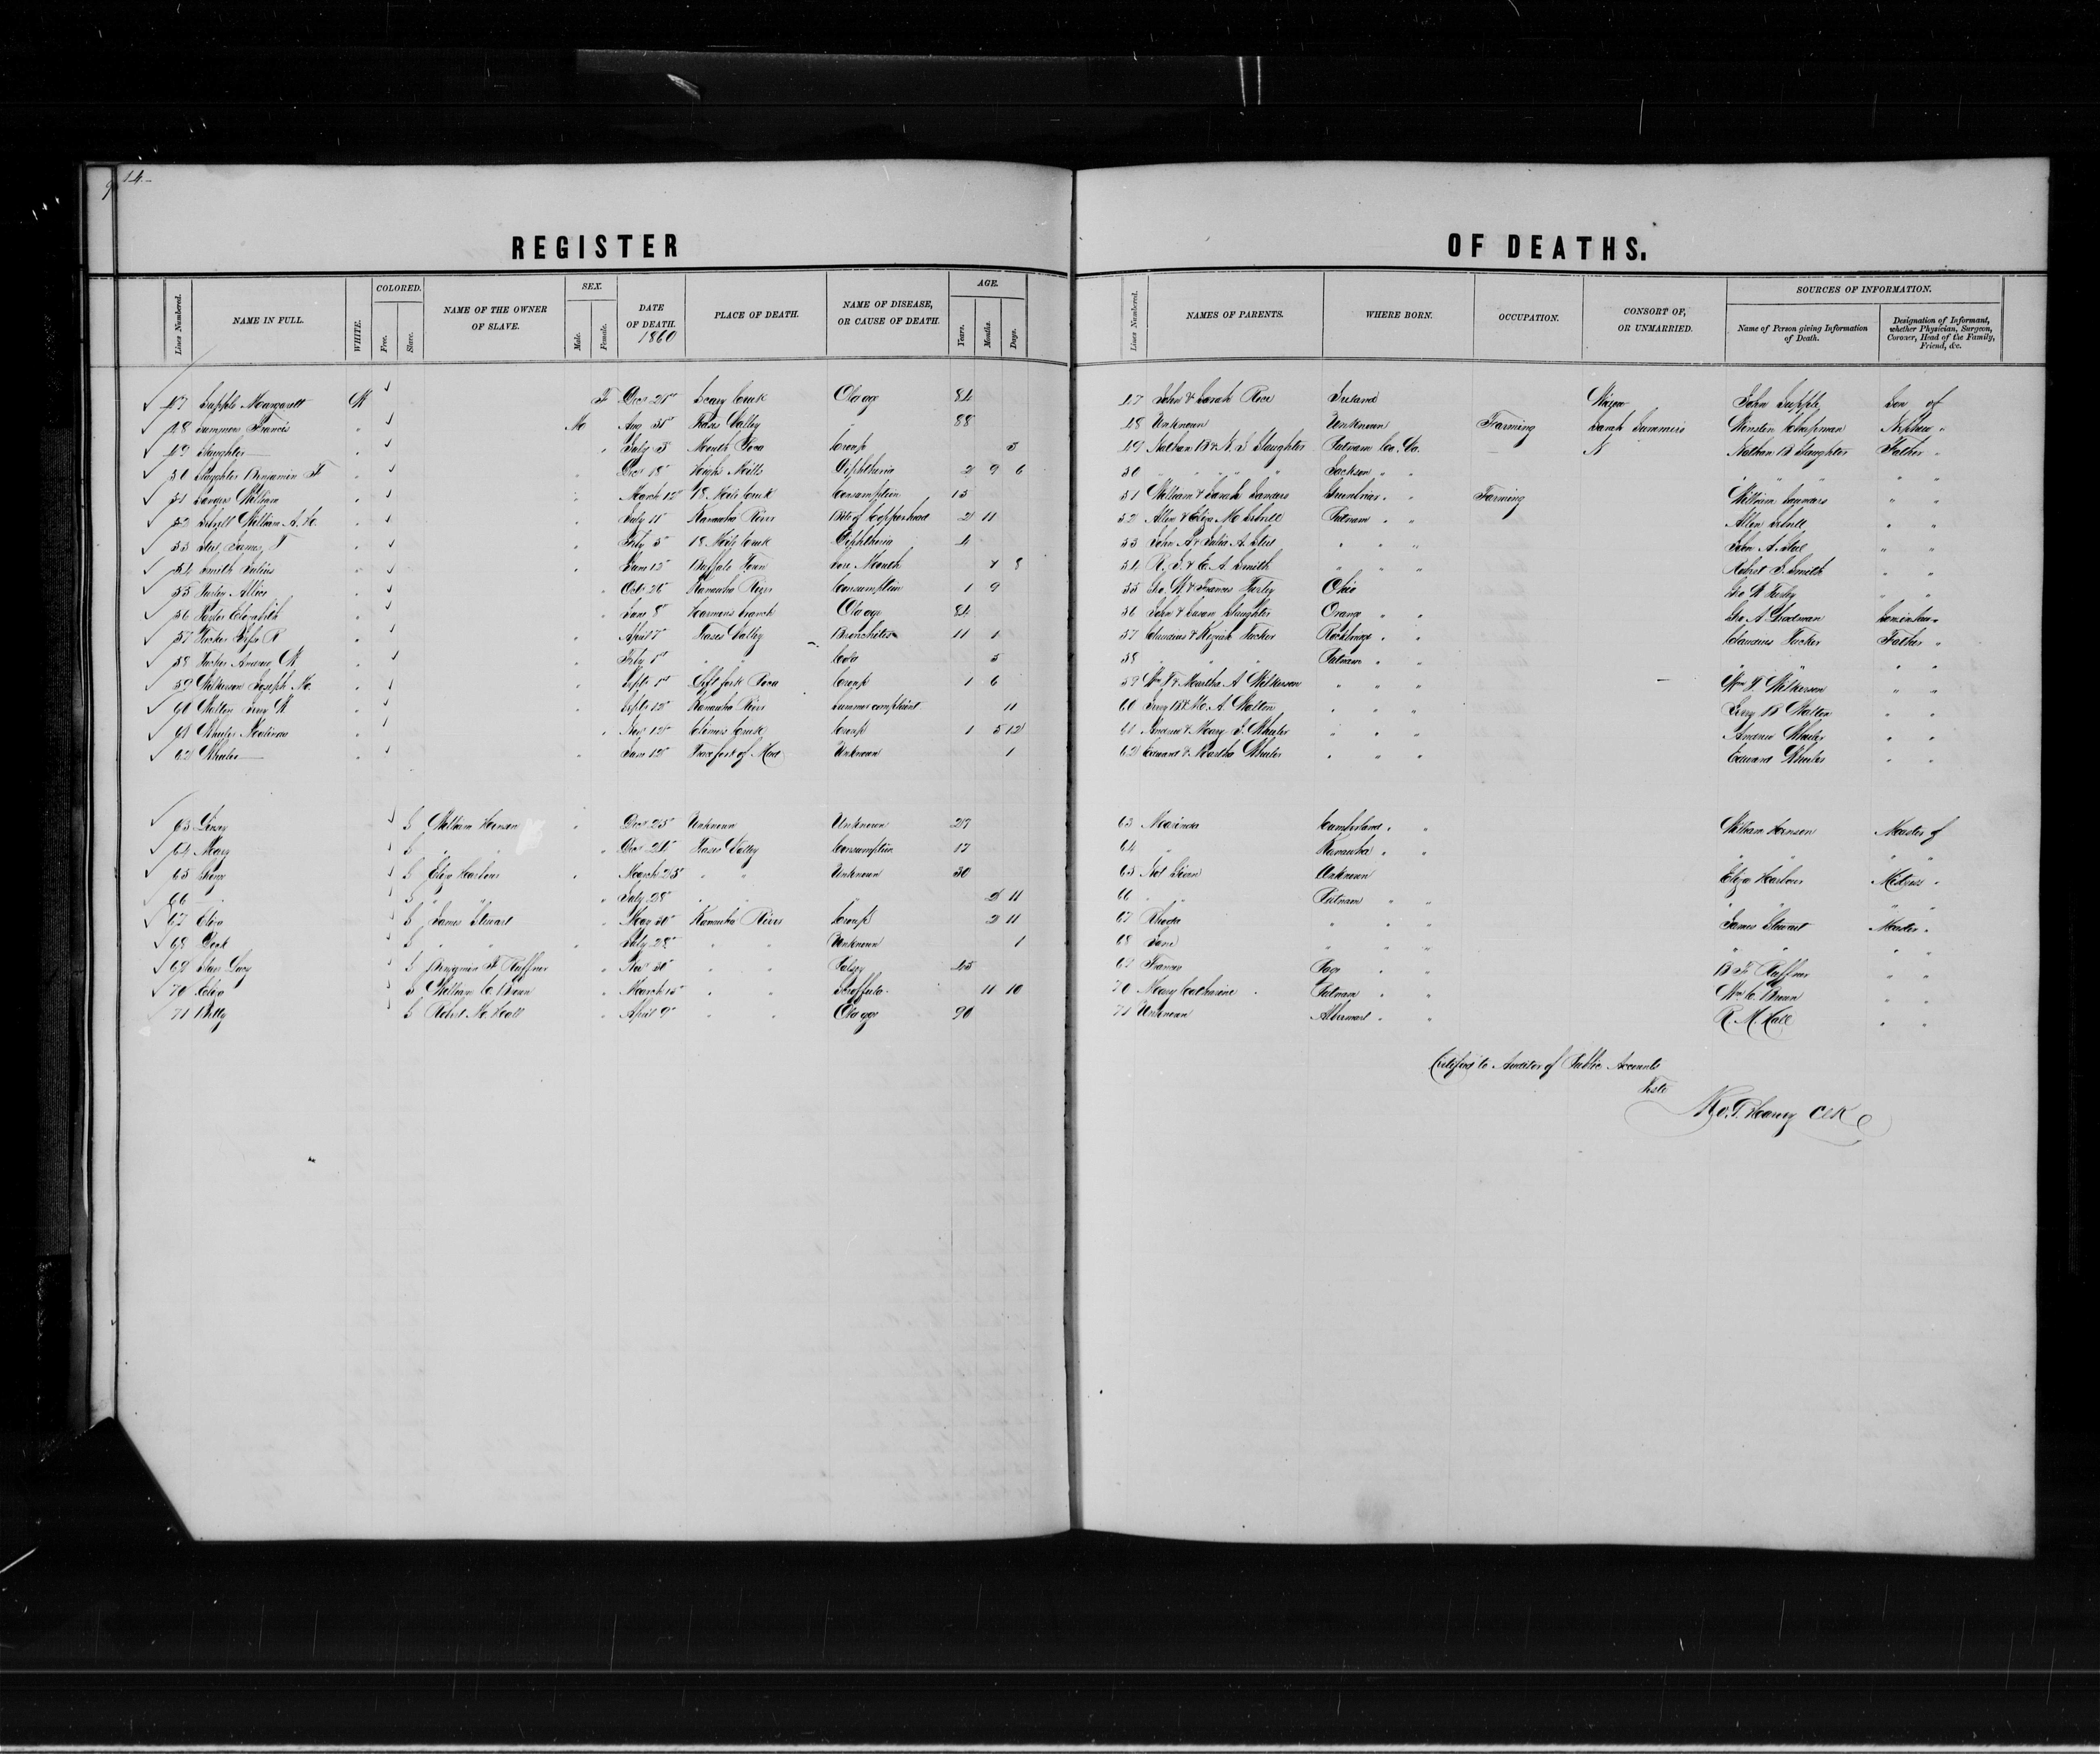 14.
REGISTER OF DEATHS.
Lines Numbered. NAME IN FULL. WHITE. COLORED. Free. Slave. NAME OF THE OWNER OF SLAVE. SEX. Male. Female. DATE OF DEATH. 1860 PLACE OF DEATH. NAME OF DISEASE, OR CAUSE OF DEATH. AGE. Years. Months. Days. Lines Numbered. NAMES OF PARENTS. WHERE BORN. OCCUPATION. CONSORT OF, OR UNMARRIED. SOURCES OF INFORMATION. Name of Person giving Information of Death. Designation of Informant, whether Physician, Surgeon, Coroner, Head of the Family, Friend, &c.
47 Supple Margarett W F Dec 21st Scary Creek Old age 84 47 John & Sarah Rice Ireland John Supple Son of
48 Summers Francis " M Aug 31st Teases Valley " 88 48 Unknown Unknown Farming Sarah Summers Winston Chapman Nephew "
49 Slaughter " " July 3 Mouth Poca Croup 3 49 Nathan B & N. S Slaughter Putnam Co. Va. Nathan B Slaughter Father "
50 Slaughter Benjamin F " " Dec 18" Mills Diphtheria 2 9 6 50 " " " " Jackson " " " " " "
51 Sanders William " " March 12" 18 Mile Creek Consumption 15 51 William & Sarah Sanders Greenbriar " " Farming William Sanders " "
52 William A. H. " " July 11" Kanawha River Bite of Copperhead 2 11 52 Allen & Eliza M Putnam " " Allen " "
53 Steel James T " " Feby 5" 18 Mile Creek Diphtheria 4 53 John A & Julia A Steel " " " John A Steel " "
54 Smith Julius " " June 12" Buffalo Town Sore Mouth 7 8 54 R. S. & E. A Smith " " " Robert S. Smith " "
55 Turley Allice " " Oct 26" Kanawha River Consumption 1 9 55 Geo. W & Frances Turley Ohio Geo W Turley " "
56 Elizabeth " " Jany 8" Harmons branch Old age 84 56 John & Susan Slaughter Orange " " Geo A Son in law "
57 Tucker R " " April 7" Teases Valley Bronchites 11 1 57 Claudius & Keziah Tucker Rockbridge " " Claudius Tucker Father "
58 Tucker Andrew W " " Feby 1st " " Cold 5 58 " " " Putnam " " " " " "
59 Wilkerson Joseph M. " " Sept 1st Left fork Poca Croup 1 6 59 Wm T & Martha A Wilkerson " " " Wm T. Wilkerson " "
60 Walton W " " Sept 12" Kanawha River Summer complaint 11 60 B & M. A. Walton " " " B Walton " "
61 Wheeler Malinda " " Nov 12" Creek Croup 1 5 12 61 Andrew & Mary J. Wheeler " " " Andrew Wheeler " "
62 Wheeler " " Jany 12" Unknown 1 62 Edward & Martha Wheeler " " " Edward Wheeler " "
63 S William Henson " Dec 25" Unknown Unknown 27 63 Marinda Cumberland " " William Henson Master of
64 Mary S " " " Dec 21" Teases Valley Consumption 17 64 " Kanawha " " " " " "
65 S Eliza Harbour " March 25" " " Unknown 30 65 Unknown Eliza Harbour Mistress "
66 S " " " July 28" " " " 2 11 66 " " Putnam " " " " " "
67 Eliza S James Stewart " May 30" Kanawha River Croup 2 11 67 Rhoda " " " James Stewart Master "
68 S " " " July 28" " " Unknown 1 68 Jane " " " " " " "
69 Lucy S Benjamin F Ruffner " Nov 30" " " Palsey 45 69 Frances Page " " B F Ruffner " "
70 Eliza S William C Brown " March 15" " " Scroffula 11 10 70 Mary Catharine Putnam " " Wm C. Brown " "
71 S Robert M. Hall " April 9" " " Old age 90 71 Unknown Albermarl " " R. M. Hall " "
Certified to Auditor of Public Accounts
Teste
Harvey Clk